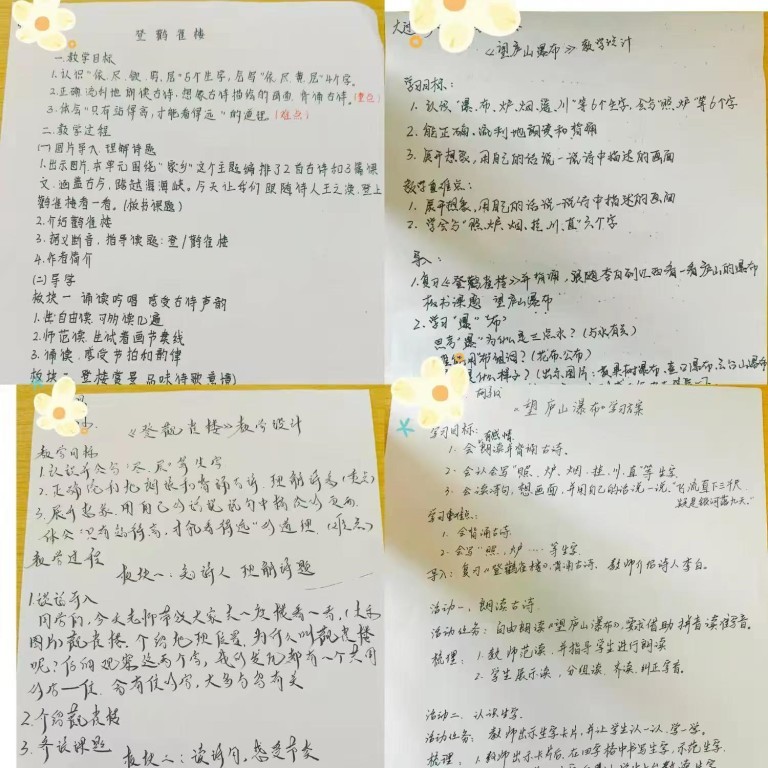 登鹳雀楼
一.教学目标
1.认识"依、尽、
层"5个生字,会写"依、尽、黄、层"4个字。
2.正确、流利地朗读古诗.想象古诗描绘的画面.背诵古诗。(重点)
3.体会"只有站得高,才能看得远"的道理.(难点)
二.教学过程
(一)图片导入.理解诗题
1.出示图片.本单元围绕"家乡"这个主题编排了2首古诗和3篇课
文.涵盖古今,跨越海峡。今天让我们跟随诗人王之涣.登上
鹳雀楼看一看。(板书课题)
2.介绍鹳雀楼
3.据义断音,指导读题:登/鹳雀楼
4.作者简介
(二)导学
板块一 诵读吟唱 感受古诗声韵
1.生自由读.可多读几遍
2.师范读.生试着画节奏线
3.诵读.感受节拍和韵律
板块二 登楼赏景 品味诗歌意境
《望庐山瀑布》教学设计
学习目标:
1. 认识"瀑、布、炉、烟、遥、川"等6个生字,会写"照、炉"等6个字
2. 能正确、流利地朗读和背诵
3. 展开想象,用自己的话说一说诗中描述的画面
教学重难点:
1. 展开想象,用自己的话说一说诗中描述的画面
2. 学会写"照、炉、烟、挂、川、直"六个字
导入:
1.复习《登鹳雀楼》并背诵,跟随李白到江西看一看庐山的瀑布
板书课题 望庐山瀑布
2.学习"瀑""布"
思考"瀑"为什么是三点水?(与水有关)
用布组词?(花布、公布)
是什么样子?(出示图片:黄果树瀑布、
《登鹳雀楼》教学设计
教学目标
1.认识并会写"尽、层"等生字
2.正确流利地朗读和背诵古诗,理解诗意(重点)
3.展开想象,用自己的话说说诗句中描绘的画面
体会"只有站得高,才能看得远"的道理.(难点)
教学过程
板块一:知诗人 理解诗题
1.谈话导入
同学们,今天老师带领大家去一处楼看一看,(出示
图片)鹳雀楼,介绍地理位置.为什么叫鹳雀楼
呢?仔细观察这两个字,我们发现都有一个共同
的部位,含有隹的字,大多与鸟有关
2.介绍鹳雀楼
3.齐读课题
板块二:读诗句,感受节奏
《望庐山瀑布》学习方案
学习目标:
1. 会有感情朗读并背诵古诗。
2. 会认会写"照、炉、烟、挂、川、直"等生字
3. 会读诗句,想画面,并用自己的话说一说,"飞流直下三千尺,
疑是银河落九天。"
学习重难点:
1. 会背诵古诗.
2. 会写"照、炉……等生字.
导入:复习《登鹳雀楼》,背诵古诗,教师介绍诗人李白.
活动一、朗读古诗.
活动任务:自由朗读《望庐山瀑布》,要求借助拼音读准字音。
梳理:1.教师范读,并指导学生进行朗读
2.学生展示读,分组读、齐读,纠正字音。
活动二、认识生字.
活动任务:教师出示生字卡片,并让学生认一认、学一学。
梳理:1.教师出示卡片后,在田字格中书写生字,示范生字.